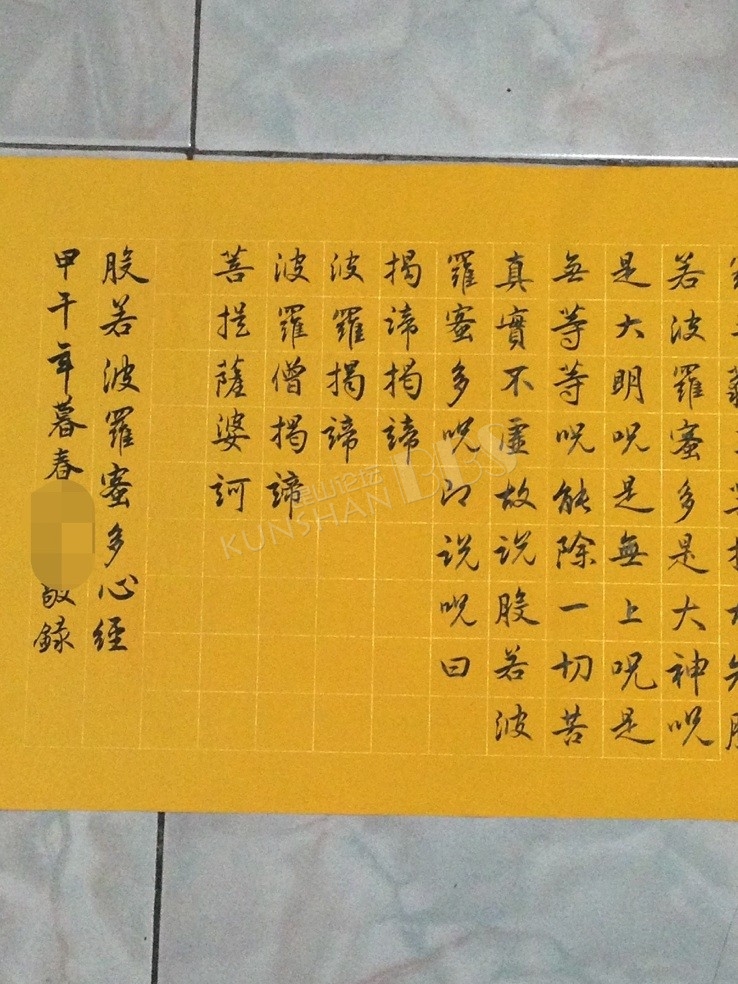 若波羅蜜多是大神呪
是大明呪是無上呪是
無等等呪能除一切苦
真實不虛故说般若波
羅蜜多呪即说呪曰
揭諦揭諦
波羅揭諦
波羅僧揭諦
菩提薩婆訶
般若波羅蜜多心經
甲午年暮春敬録
昆山论坛
KUNSHAN BBS